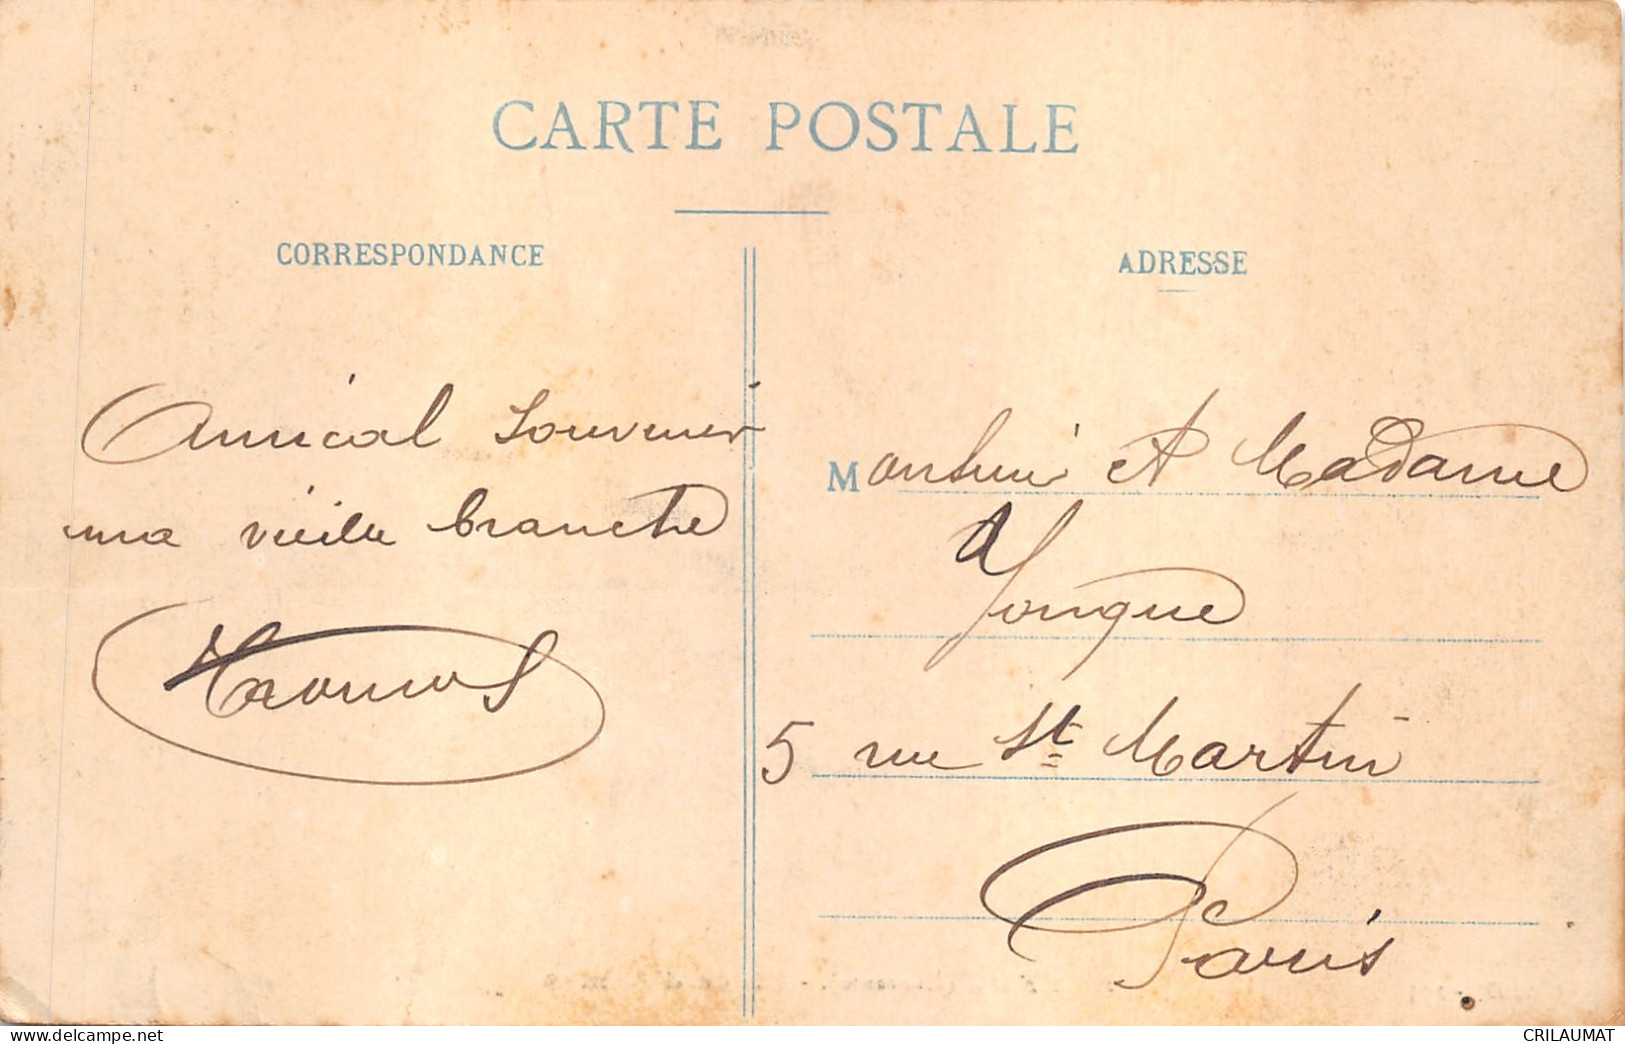 CARTE POSTALE
CORRESPONDANCE
ADRESSE
Amical Souvenir
ma vieille branche
Monsieur et Madame
A
5 rue St Martin
Paris
CRILAUMAT